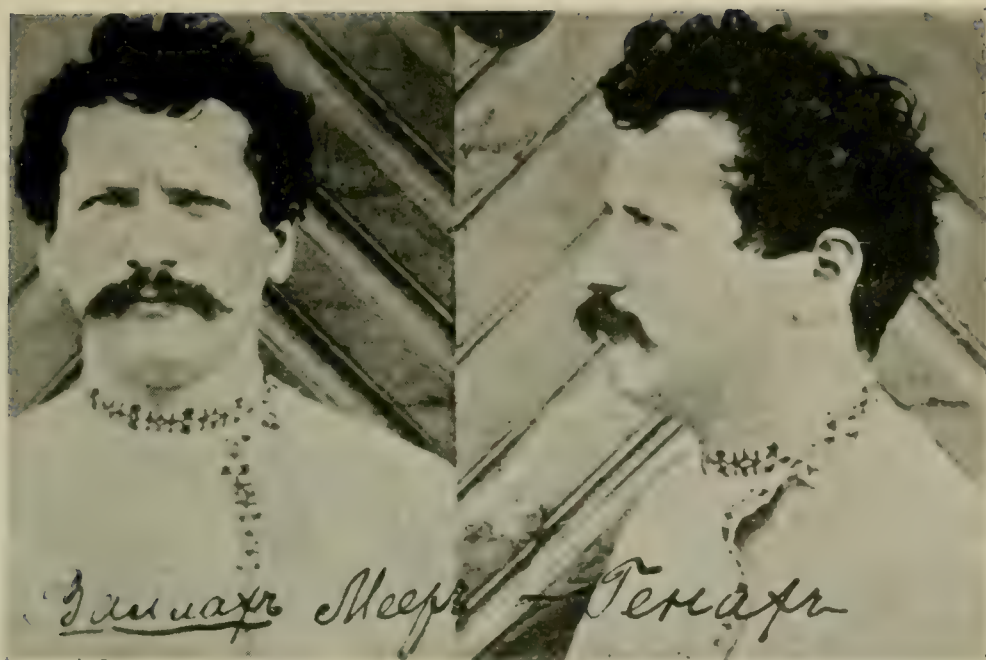 Залилахъ Мееръ — Генахъ